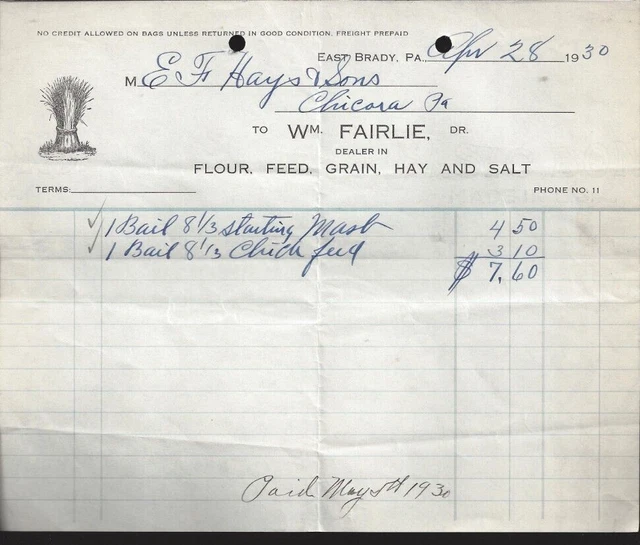 NO CREDIT ALLOWED ON BAGS UNLESS RETURNED IN GOOD CONDITION. FREIGHT PREPAID
EAST BRADY, PA., Apr 28 1930
M E F Hays & Sons
Chicora Pa
TO WM. FAIRLIE, DR.
DEALER IN
FLOUR, FEED, GRAIN, HAY AND SALT
TERMS: PHONE NO. 11
1 Bail 8 1/3 Starting Mash 4 50
1 Bail 8 1/3 Chick feed 3 10
$ 7,60
Paid May 5th 1930